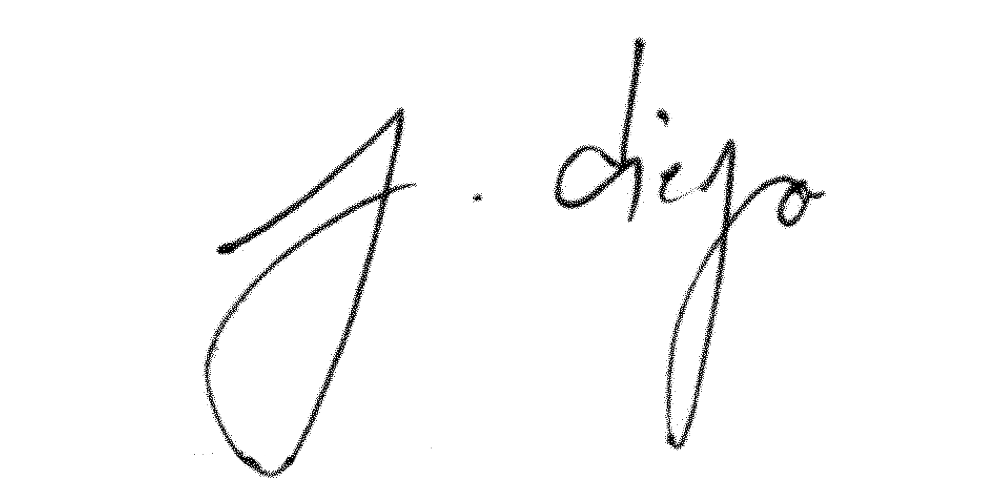 J. diego